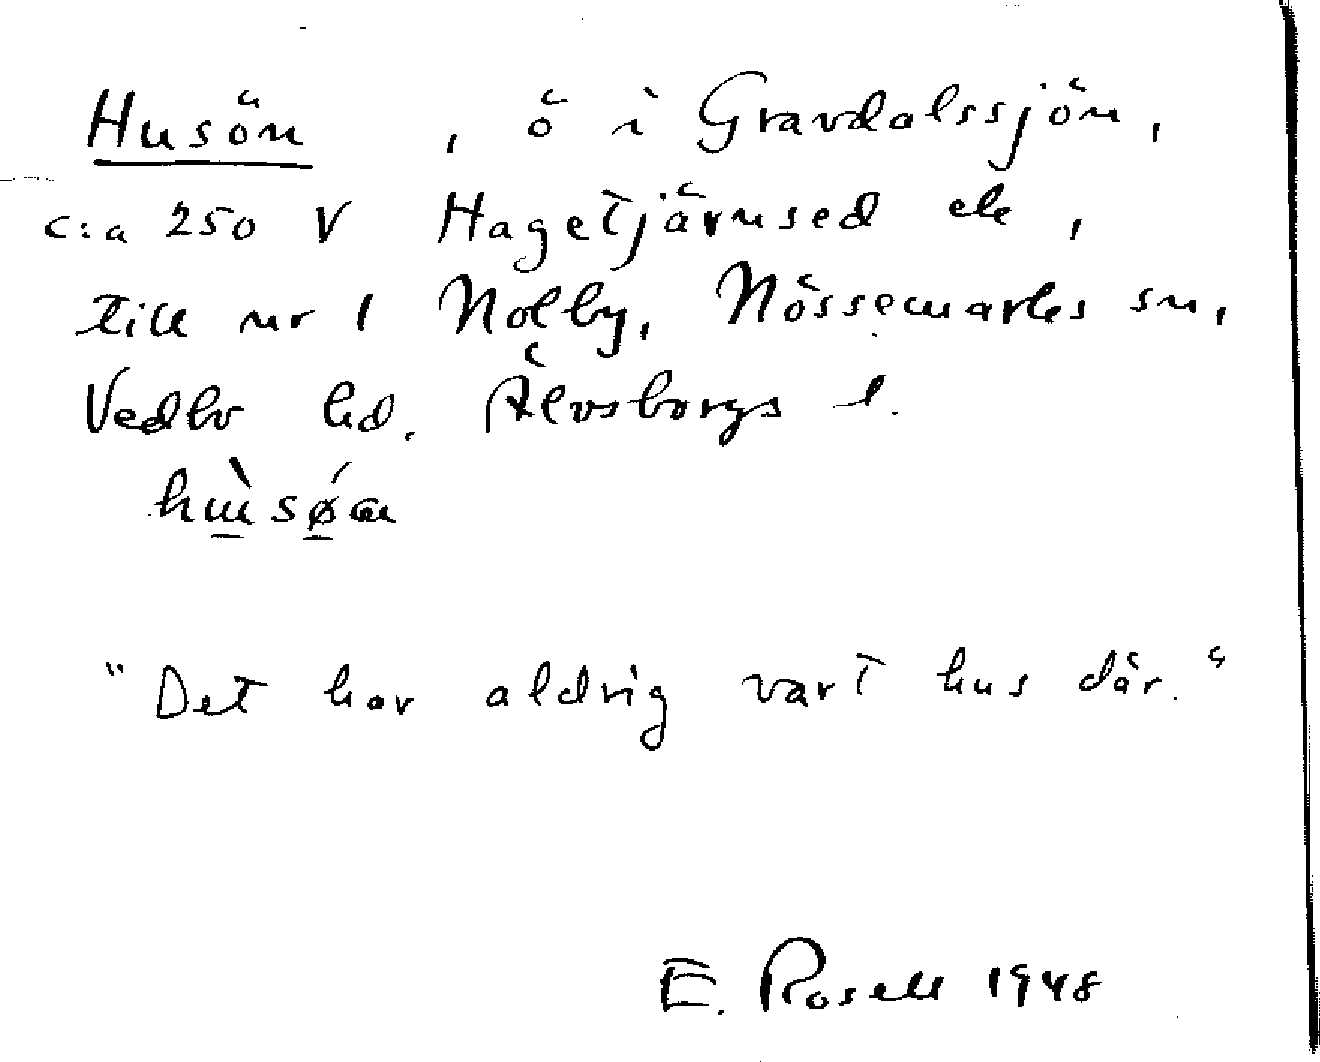 Husön , ö i Gravdalssjön,
c:a 250 V Hagetjärnsed ,
till nr 1 Nolby, Nössemarks sn,
Vedbo hd. Älvsborgs l.
"Det har aldrig vart hus där."
E. Rosell 1948